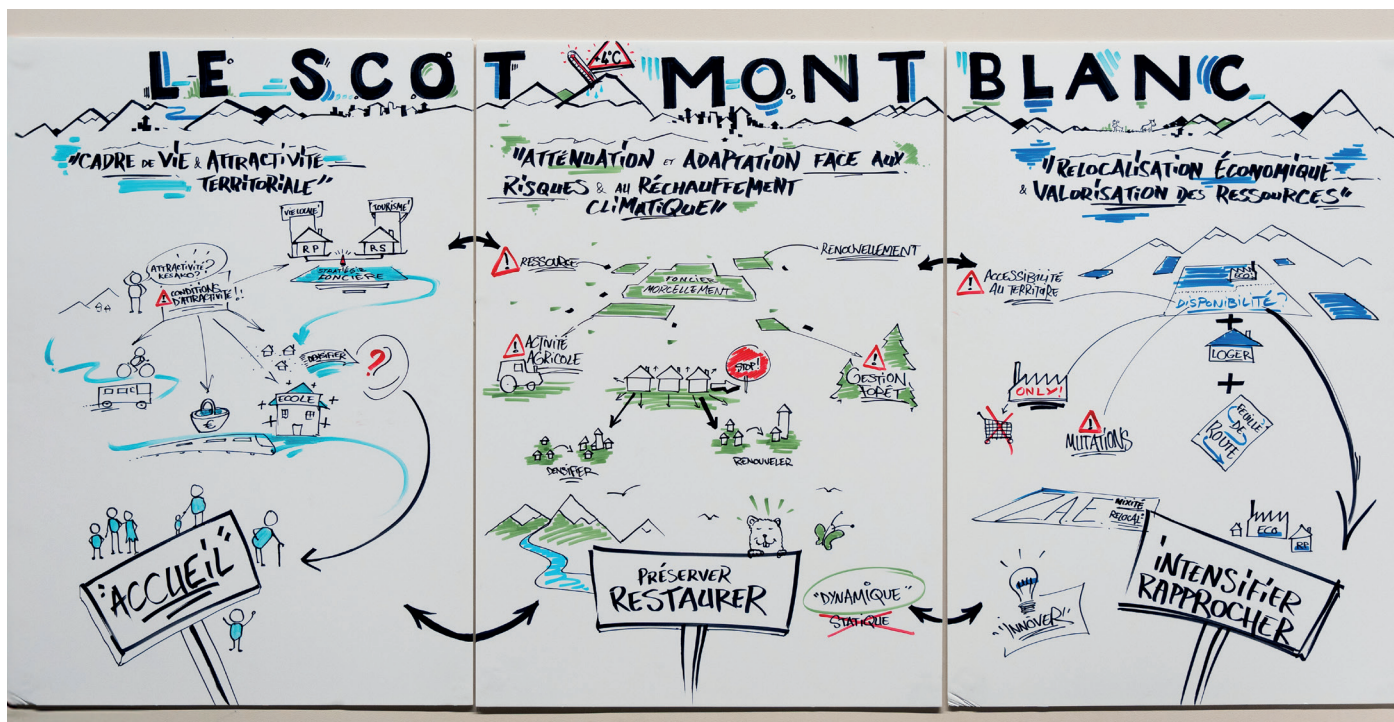 LE SCOT MONT BLANC
+4°C
"CADRE DE VIE & ATTRACTIVITÉ
TERRITORIALE"
VIE LOCALE
TOURISME
RP
RS
STRATÉGIE
FONCIÈRE
ATTRACTIVITÉ?
KESAKO?
CONDITIONS
D'ATTRACTIVITÉ!!
DENSIFIER
?
ÉCOLE
€
"ACCUEIL"
"ATTÉNUATION ET ADAPTATION FACE AUX
RISQUES & AU RÉCHAUFFEMENT
CLIMATIQUE"
RESSOURCE
RENOUVELLEMENT
FONCIER
MORCELLEMENT
ACTIVITÉ
AGRICOLE
STOP!
GESTION
FORÊT
DENSIFIER
RENOUVELER
PRÉSERVER
RESTAURER
"DYNAMIQUE"
STATIQUE
"RELOCALISATION ÉCONOMIQUE
& VALORISATION DES RESSOURCES"
ACCESSIBILITÉ
AU TERRITOIRE
ECO
DISPONIBILITÉ?
+
LOGER
+
ONLY!
MUTATIONS
FEUILLE
DE
ROUTE
ZAE
MIXITÉ
RELOCAL
ECO
RP
"INNOVER"
"INTENSIFIER
RAPPROCHER"